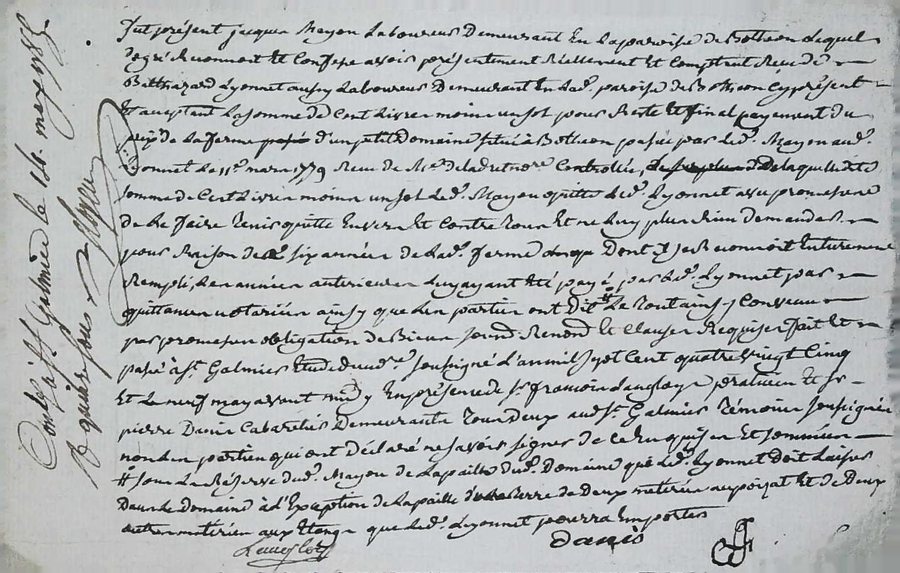 fut présent jacques Mayon Laboureur Demeurant En la paroisse de Botheon Lequel
de gré Reconnoit Et Confesse avoir présentement Réellement Et Comptant Receu de
Balthazard Lyonnet aussy Laboureur Demeurant En Lad. paroisse de Botheon Cy présent
Et aceptant La somme de Cent Livres moins un sol pour Reste Et final payement du
prix de La ferme passée d'un petit Domaine situé à Botheon passée par Led. Mayon aud.
Lyonnet Le 11e. mars 1779 Receu de Me. Controllée, De laquelle dte
somme de Cent Livres moins un sol Led. Mayon quitte Led. Lyonnet avec promesse
de Le faire Tenir quitte Envers Et Contre Tous Et ne Luy plus Rien demander
pour Raison des six années de Lad. ferme Dont Il se Reconnoit Entierement
Rempli, Les années anterieures Luy ayant été payé par Led. Lyonnet par
quittances notariées ainsy que Les parties ont Dit # Le tout ainsy Convenu
par promesses obligation de Biens Renond. Et Clauses Requises fait Et
passé à St. Galmier Etude du nre. soussigné L'an mil sept Cent quatre vingt Cinq
Et Le neuf may avant midy En présence de Sr. françois Langloys praticien Et Sr.
pierre Danis Cabaretier Demeurants Tous Deux aud. St. Galmier Témoins soussignés
non Les parties qui ont déclaré ne savoir signer de ce Enquises Et sommées
# sous La Réserve dud. Mayon de La paille dud. Domaine que Led. Lyonnet Doit Laisser
Dans Le domaine à L'Exception de La paille de Deux meteries Et de Deux
autres meteries aux Etangs que Led. Lyonnet pourra Emporter
Langlois
danis
Contlé à St Galmier le 14 may 1785
R quinze sous